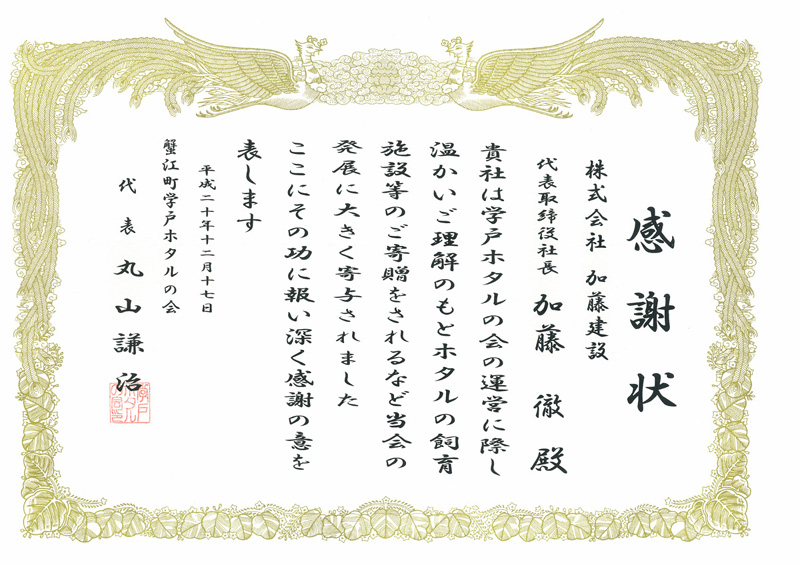 感謝状
株式会社 加藤建設
代表取締役社長 加藤 徹 殿
貴社は学戸ホタルの会の運営に際し
温かいご理解のもとホタルの飼育
施設等のご寄贈をされるなど当会の
発展に大きく寄与されました
ここにその功に報い深く感謝の意を
表します
平成二十年十二月十七日
蟹江町学戸ホタルの会
代表 丸山謙治